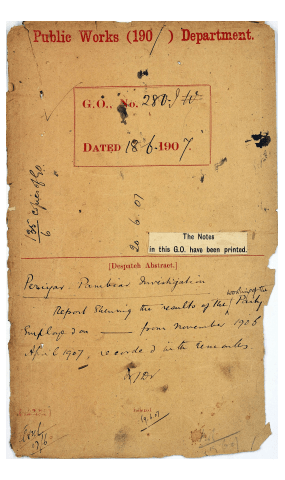 Public Works (190/ ) Department.
G.O., No. 280-I W
DATED 18-6-1907.
135 copies of G.O.
6
20 6 07
The Notes
in this G.O. have been printed.
[Despatch Abstract.]
Periyar Pambiar Investigation
Report Shewing the results of the working of the Party
Employed on — from November 1906
April 1907, recorded with remarks